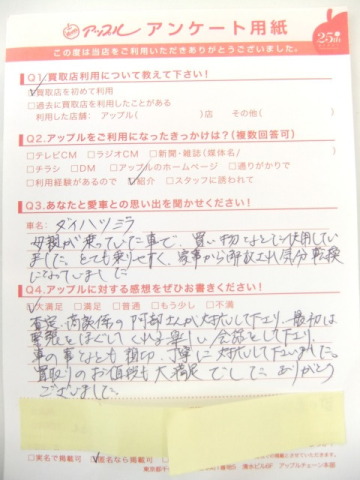 アップル アンケート用紙 25th
この度は当店をご利用いただきありがとうございました。
Q1.買取店利用について教えて下さい!
☑買取店を初めて利用
□過去に買取店を利用したことがある
利用した店舗: アップル( )店 その他( )
Q2.アップルをご利用になったきっかけは?(複数回答可)
□テレビCM □ラジオCM □新聞・雑誌(媒体名/ )
□チラシ □DM □アップルのホームページ □通りがかりで
□利用経験があるので ☑紹介 □スタッフに誘われて
Q3.あなたと愛車との思い出を聞かせください!
車名: ダイハツミラ
母親が乗っていた車で、買い物などで使用してい
ました。とても乗りやすく、家事から解放され気分転換
になっていました
Q4.アップルに対する感想をぜひお書きください!
☑大満足 □満足 □普通 □もう少し □不満
査定、商談係の阿部さんが対応して下さり、最初は
緊張をほぐしてくれる楽しい会話をして下さり
車の事なども親切、丁寧に対応して下さいました。
買取りのお値段も大満足でした ありがとう
ございました。
□実名で掲載可 ☑匿名なら掲載可
の掲載にさせていただきます。
東京都千 番地5 清水ビル6F アップルチェーン本部